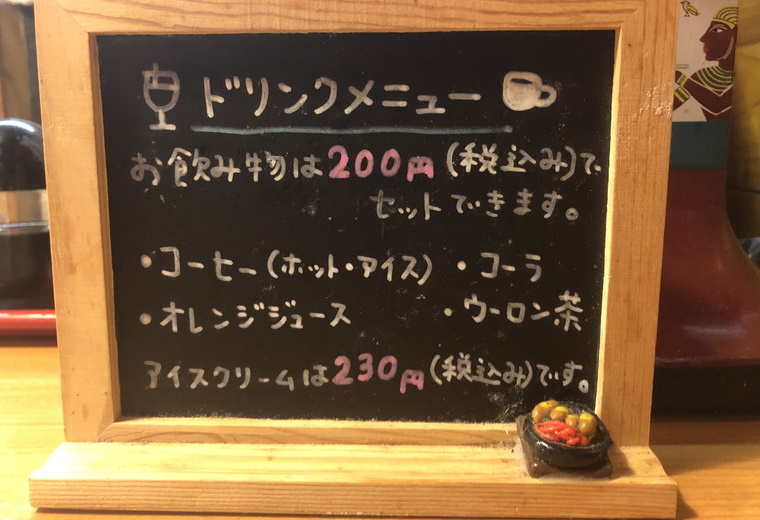 ドリンクメニュー
お飲み物は200円(税込み)で
セットできます。
・コーヒー(ホット・アイス) ・コーラ
・オレンジジュース ・ウーロン茶
アイスクリームは230円(税込み)です。